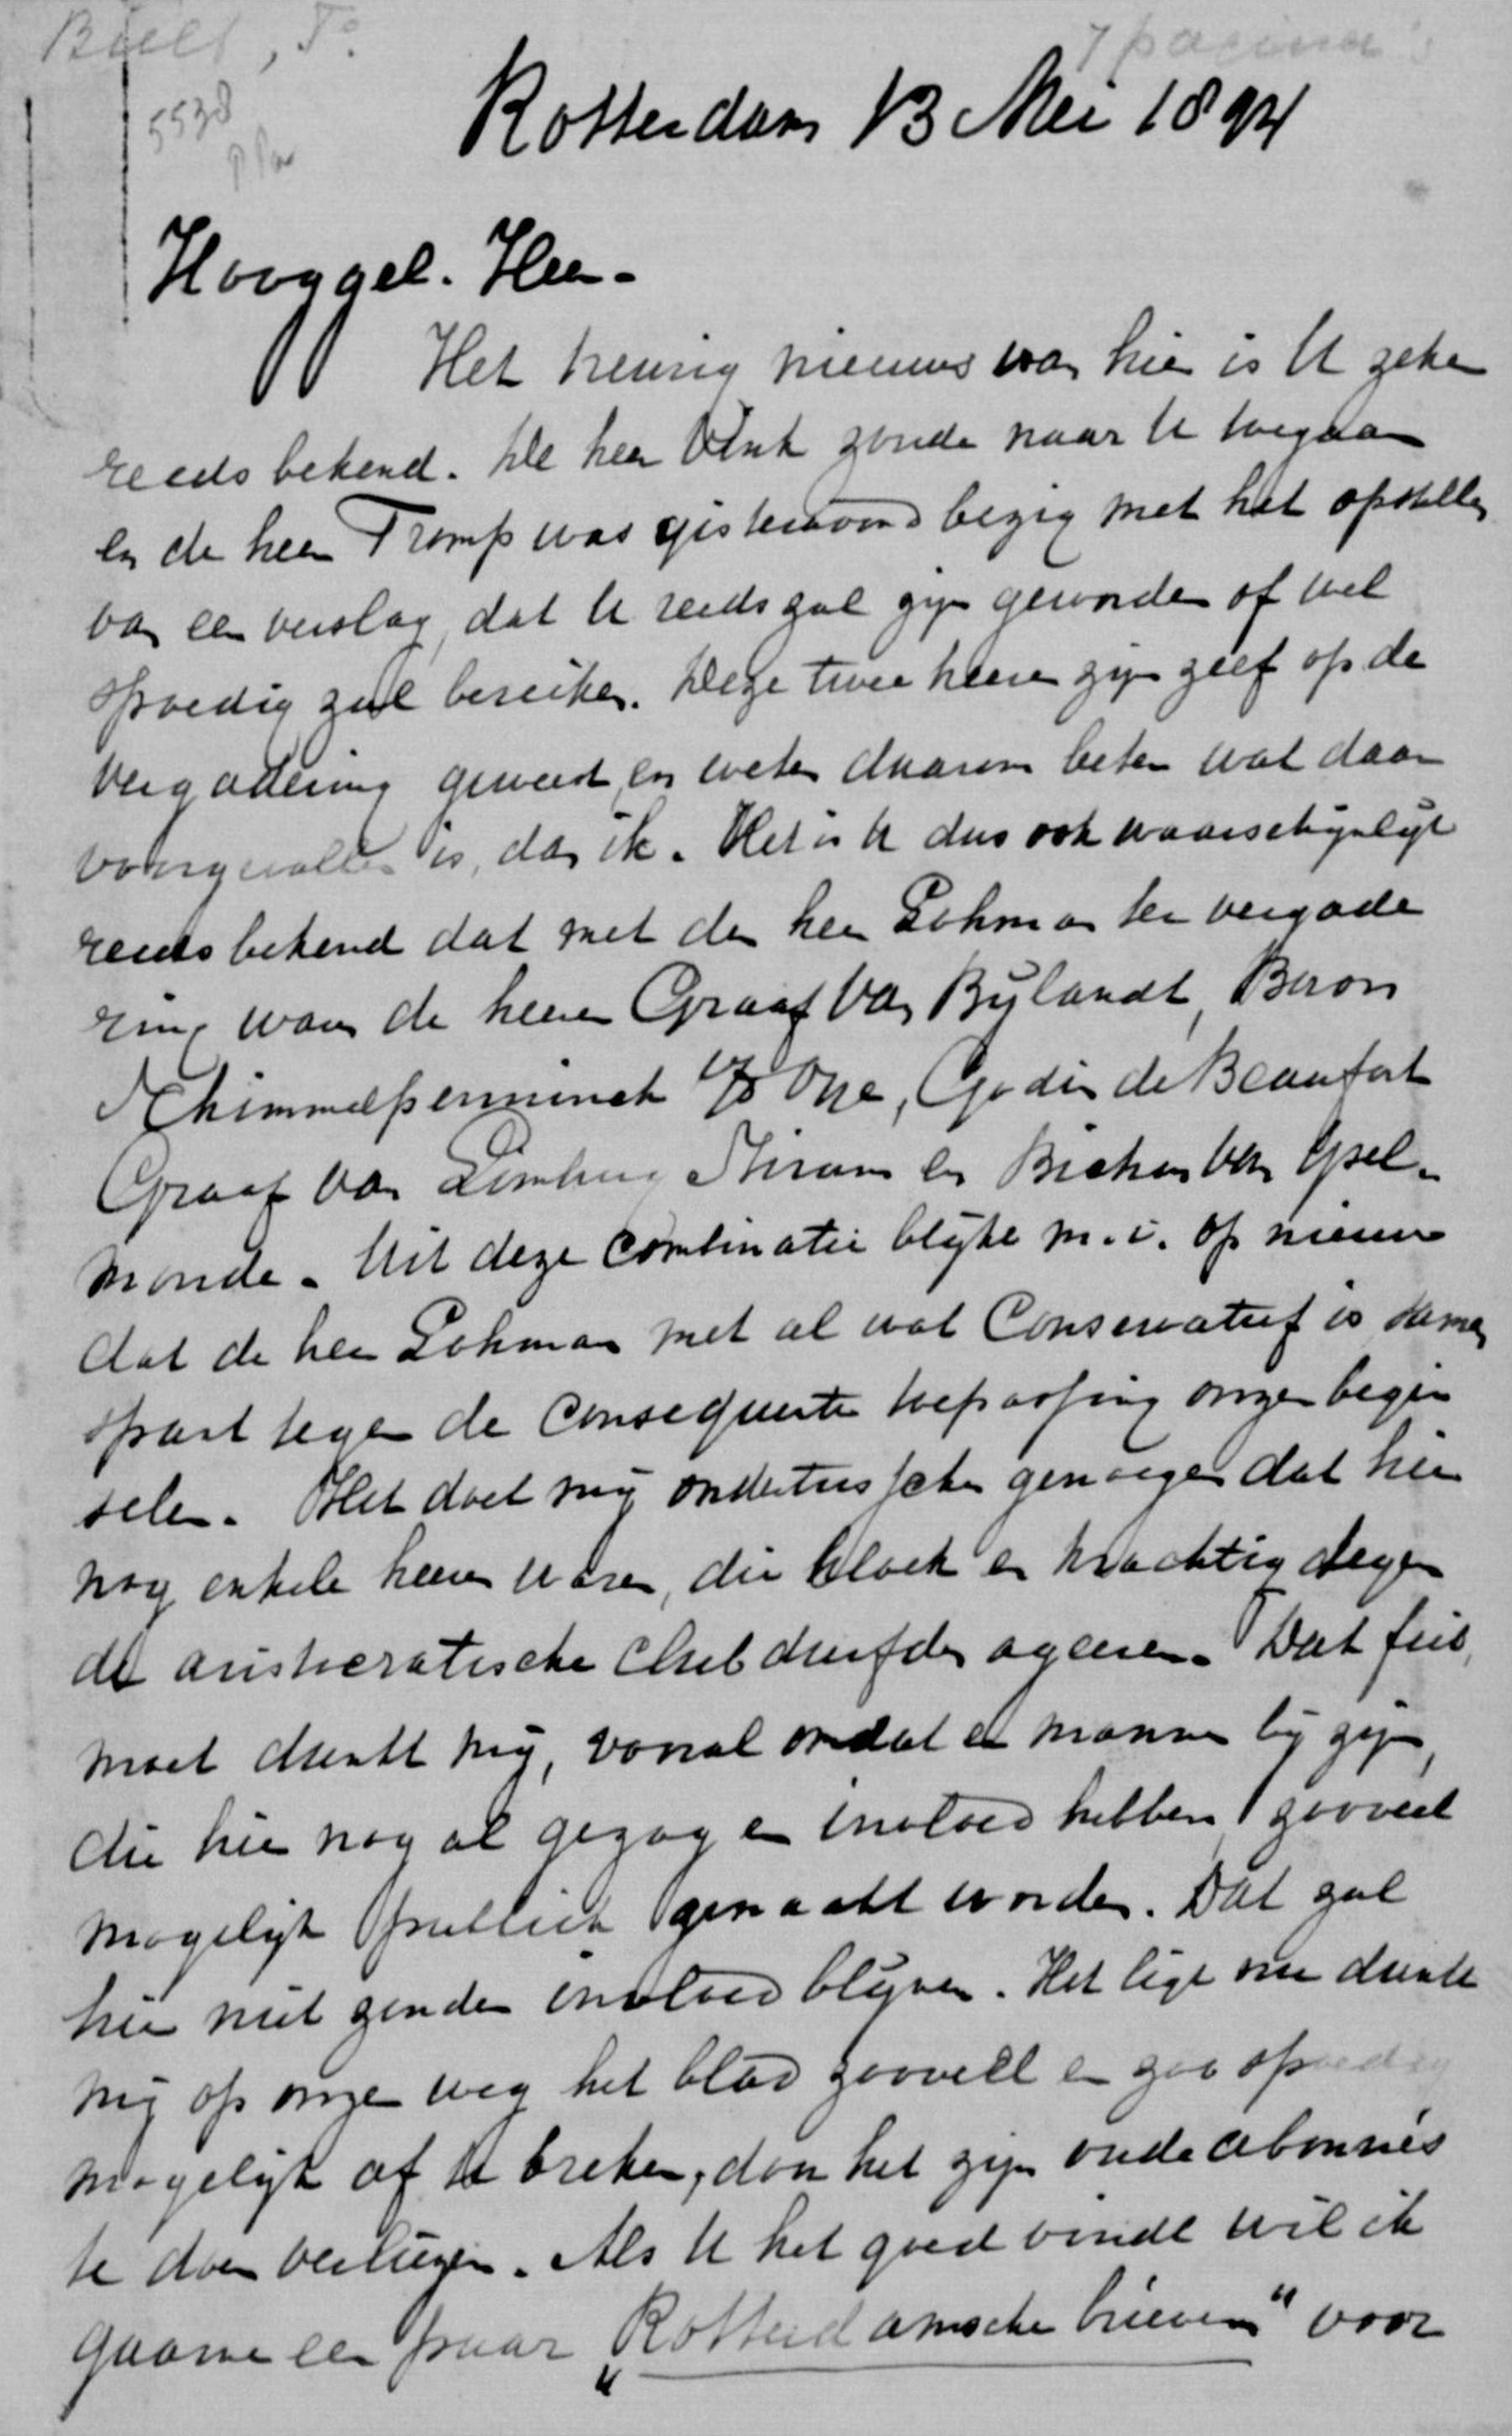 5538
Rotterdam 13 Mei 1894
Hooggel. Heer.
Het treurig nieuws van hier is U zeker
reeds bekend. De heer Vink zoude naar U toegaan
en de heer Tromp was gisteravond bezig met het opstellen
van een verslag, dat U reeds zal zijn geworden of wel
spoedig zal bereiken. Deze twee heeren zijn zelf op de
vergadering geweest, en weten daarom beter wat daar
voorgevallen is, dan ik. Het is U dus ook waarschijnlijk
reeds bekend dat met den heer Lohman ter vergade
ring waren de heeren Graaf van Bylandt, Baron
Schimmelpenninck v/d Oye, Godin de Beaufort
Graaf van Limburg Stirum en Bichon van Ysel-
monde. Uit deze combinatie blijkt m.i. op nieuw
dat de heer Lohman met al wat Conservatief is samen
spant tegen de consequente toepassing onzer begin
selen. Het doet mij ondertusschen genoegen dat hier
nog enkele heeren waren, die kloek en krachtig tegen
de aristocratische club durfden ageren. Dat feit,
moet dunkt mij, vooral omdat er mannen bij zijn,
die hier nog al gezag en invloed hebben, zooveel
mogelijk publiek gemaakt worden. Dat zal
hier niet zonder invloed blijven. Het ligt nu dunkt
mij op onzen weg het blad zooveel en zoo spoedig
mogelijk af te breken, door het zijn oude abonnés
te doen verliezen. Als U het goed vindt wil ik
gaarne een paar „Rotterdamsche brieven" voor